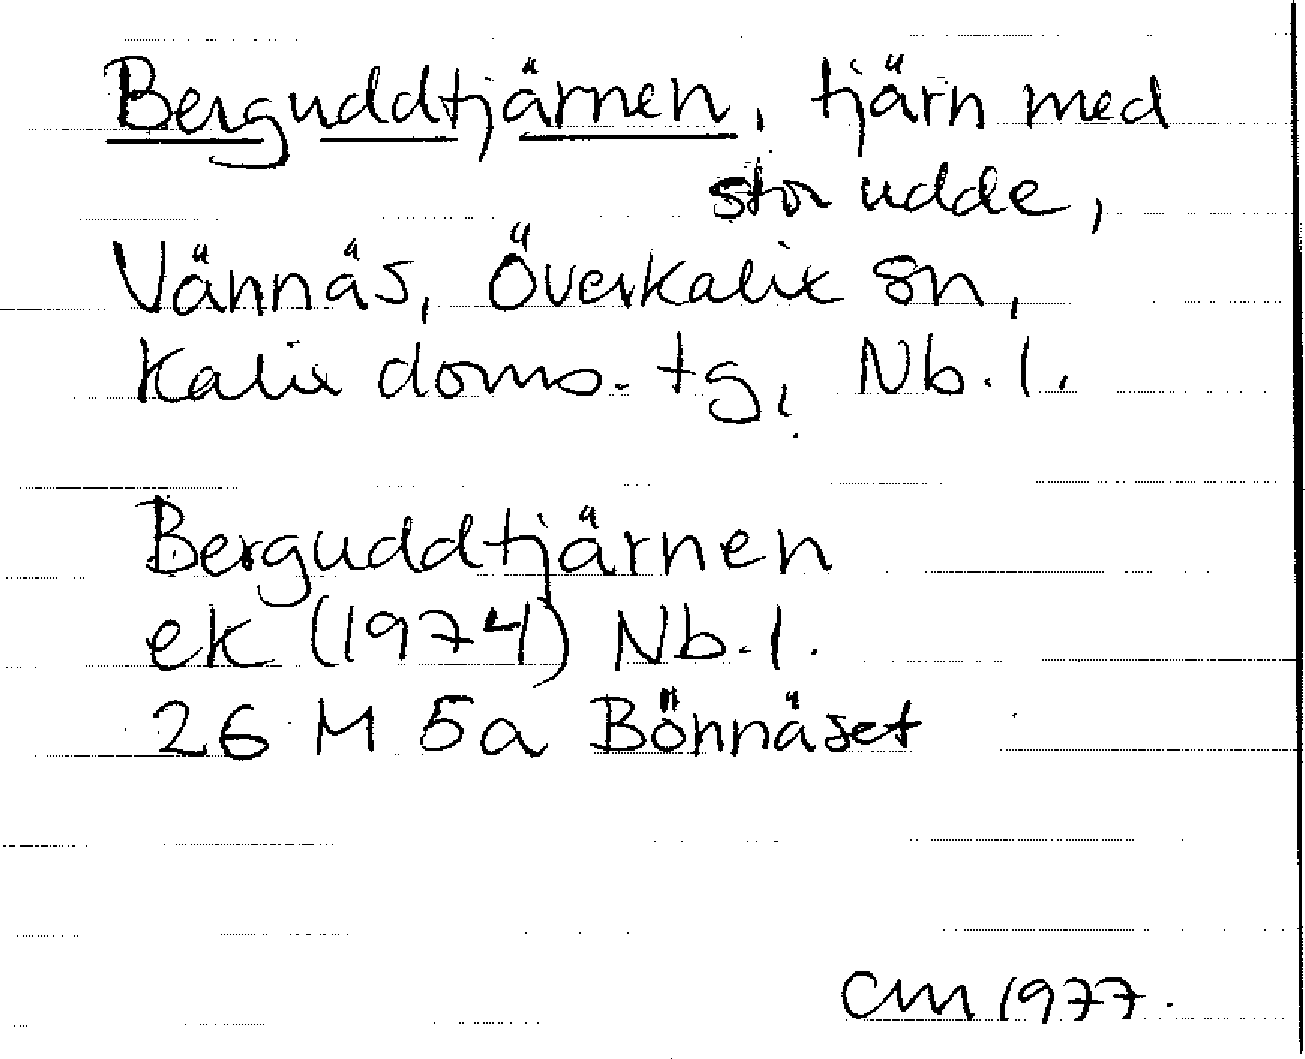 Berguddtjärnen, tjärn med
stor udde,
Vännäs, Överkalix sn,
Kalix doms. tg, Nb. l.
Berguddtjärnen
ek (1974) Nb. l.
26 M 5a Bönnäset
CM 1977.